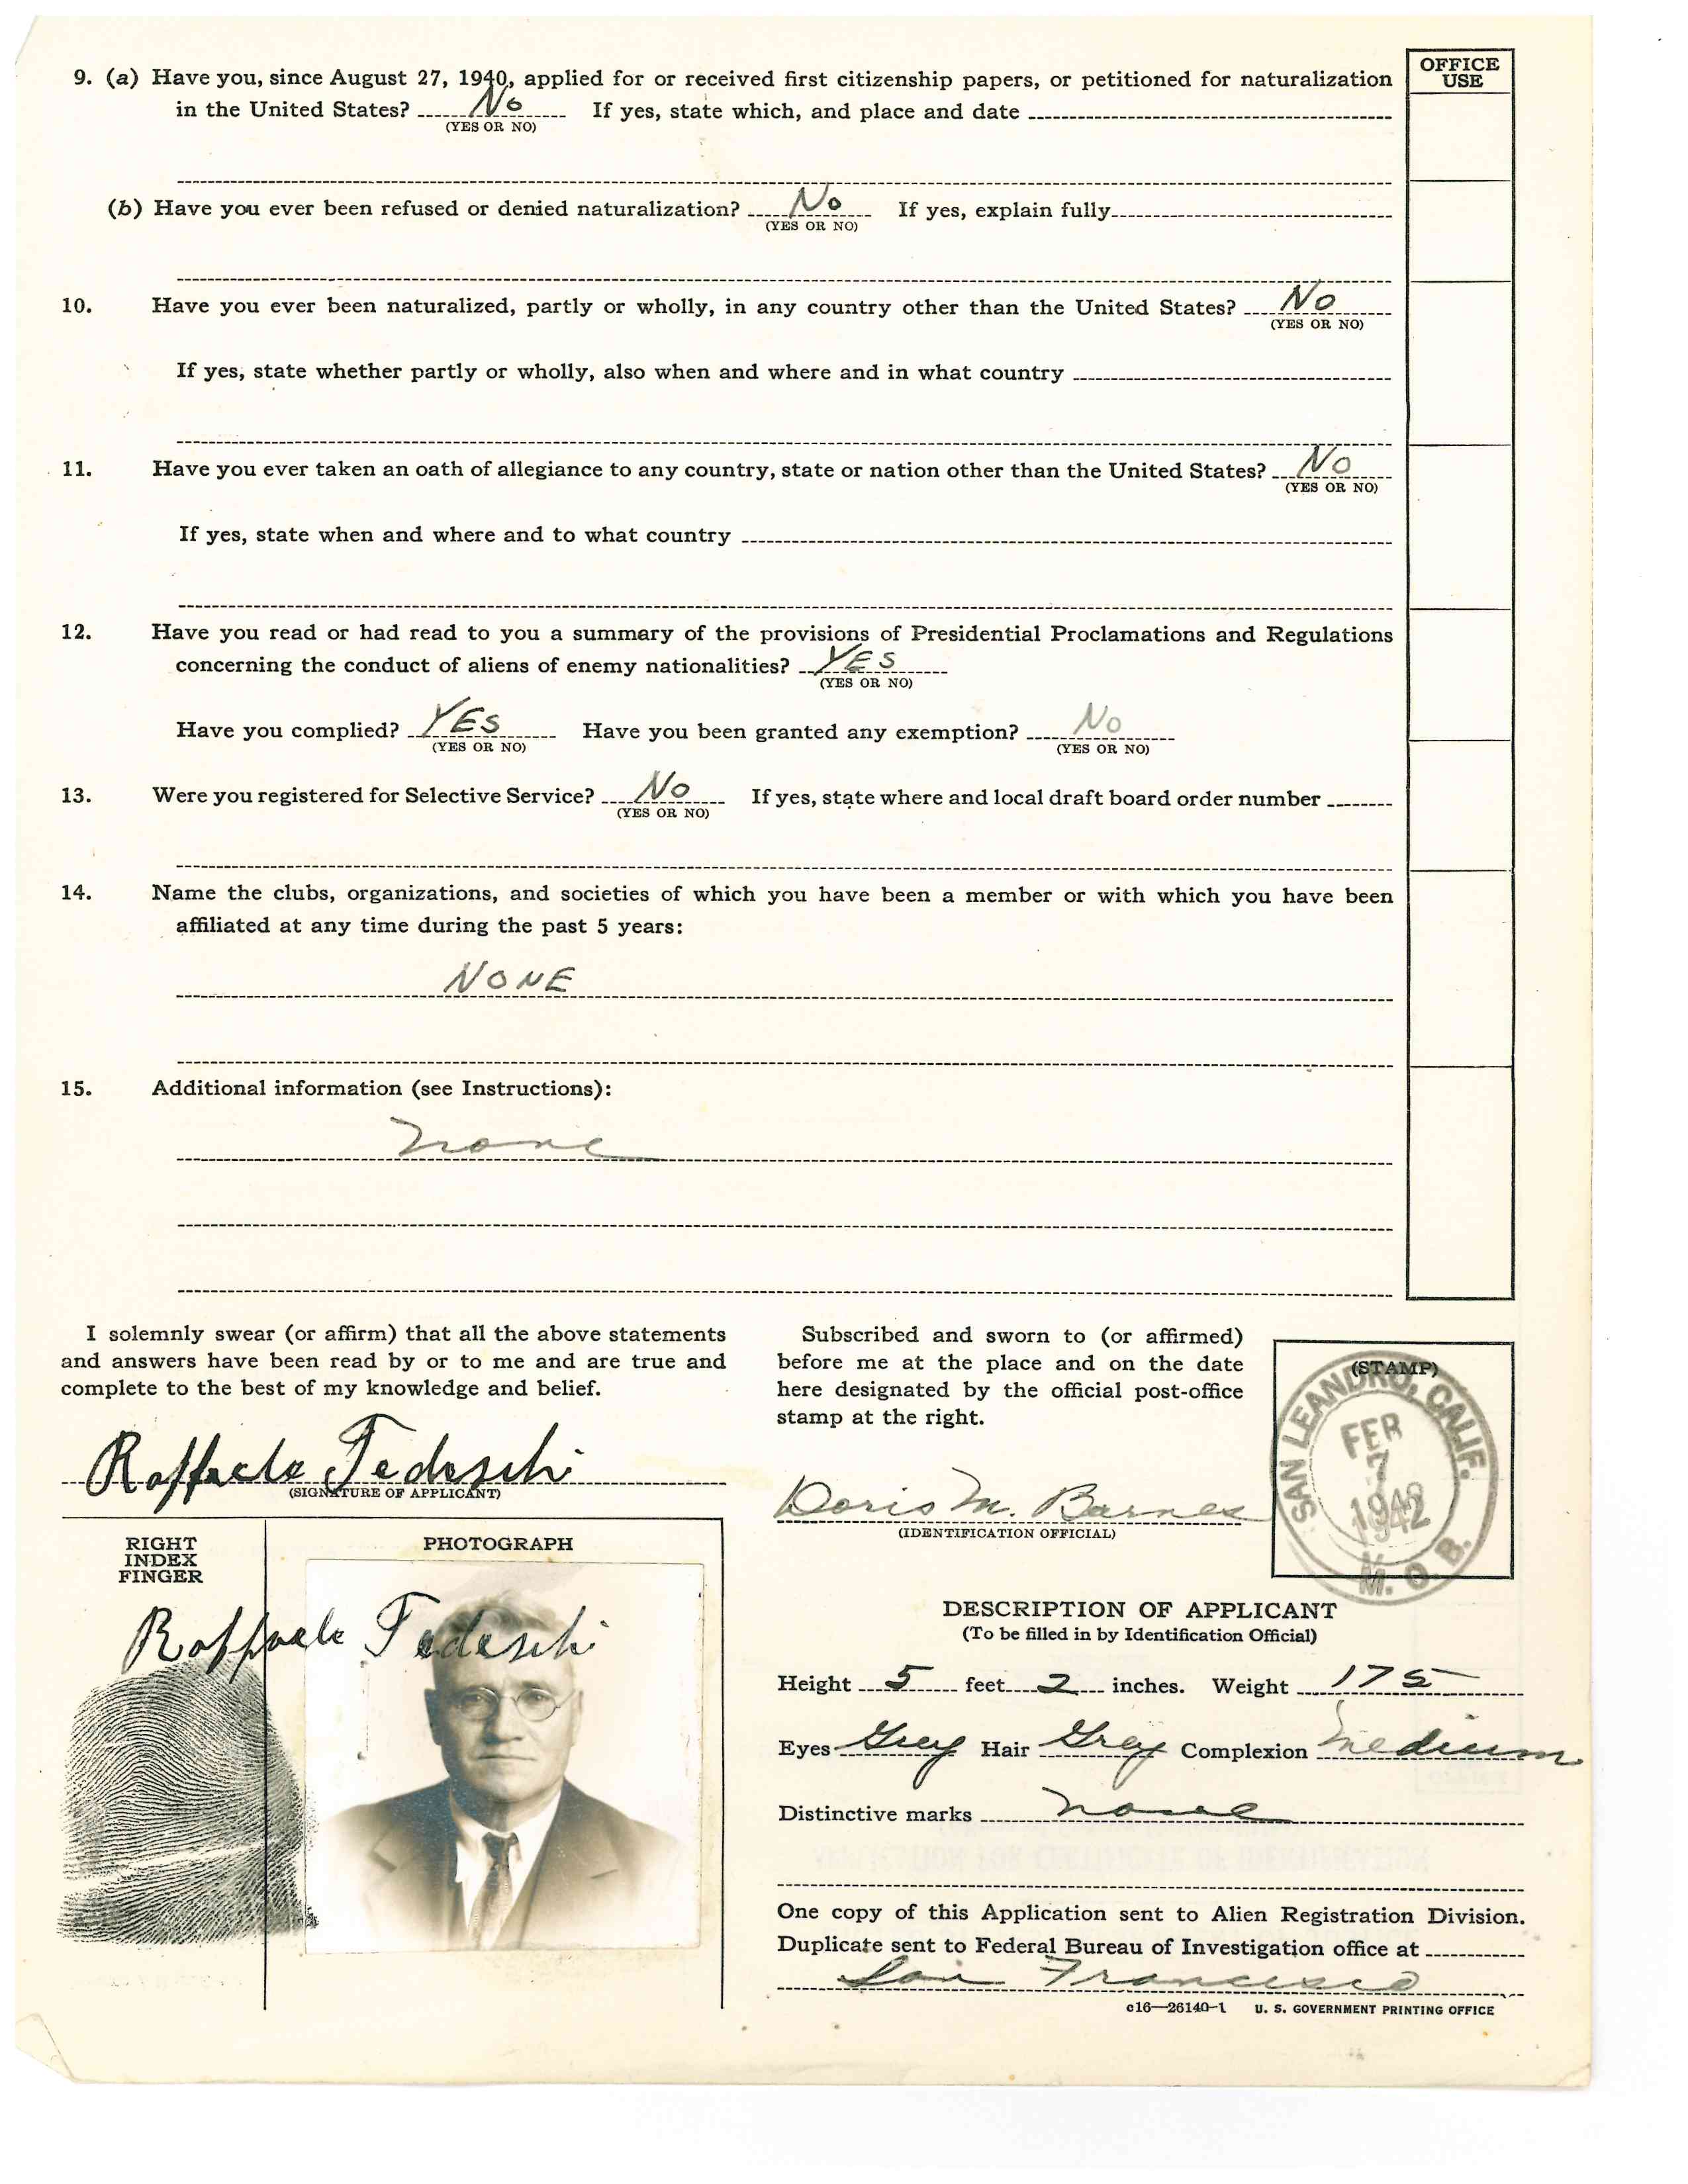 OFFICE USE
9. (a) Have you, since August 27, 1940, applied for or received first citizenship papers, or petitioned for naturalization
in the United States? No If yes, state which, and place and date
(YES OR NO)
(b) Have you ever been refused or denied naturalization? No If yes, explain fully
(YES OR NO)
10. Have you ever been naturalized, partly or wholly, in any country other than the United States? No
(YES OR NO)
If yes, state whether partly or wholly, also when and where and in what country
11. Have you ever taken an oath of allegiance to any country, state or nation other than the United States? No
(YES OR NO)
If yes, state when and where and to what country
12. Have you read or had read to you a summary of the provisions of Presidential Proclamations and Regulations
concerning the conduct of aliens of enemy nationalities? YES
(YES OR NO)
Have you complied? YES Have you been granted any exemption? No
(YES OR NO) (YES OR NO)
13. Were you registered for Selective Service? No If yes, state where and local draft board order number
(YES OR NO)
14. Name the clubs, organizations, and societies of which you have been a member or with which you have been
affiliated at any time during the past 5 years:
NONE
15. Additional information (see Instructions):
none
I solemnly swear (or affirm) that all the above statements
and answers have been read by or to me and are true and
complete to the best of my knowledge and belief.
Raffaele Tedeschi
(SIGNATURE OF APPLICANT)
Subscribed and sworn to (or affirmed)
before me at the place and on the date
here designated by the official post-office
stamp at the right.
Doris M. Barnes
(IDENTIFICATION OFFICIAL)
(STAMP)
SAN LEANDRO, CALIF.
FEB
7
1942
M. O. B.
RIGHT
INDEX
FINGER
PHOTOGRAPH
Raffaele Tedeschi
DESCRIPTION OF APPLICANT
(To be filled in by Identification Official)
Height 5 feet 2 inches. Weight 175
Eyes Grey Hair Gray Complexion Medium
Distinctive marks none
One copy of this Application sent to Alien Registration Division.
Duplicate sent to Federal Bureau of Investigation office at
San Francisco
c16—26140-1 U. S. GOVERNMENT PRINTING OFFICE